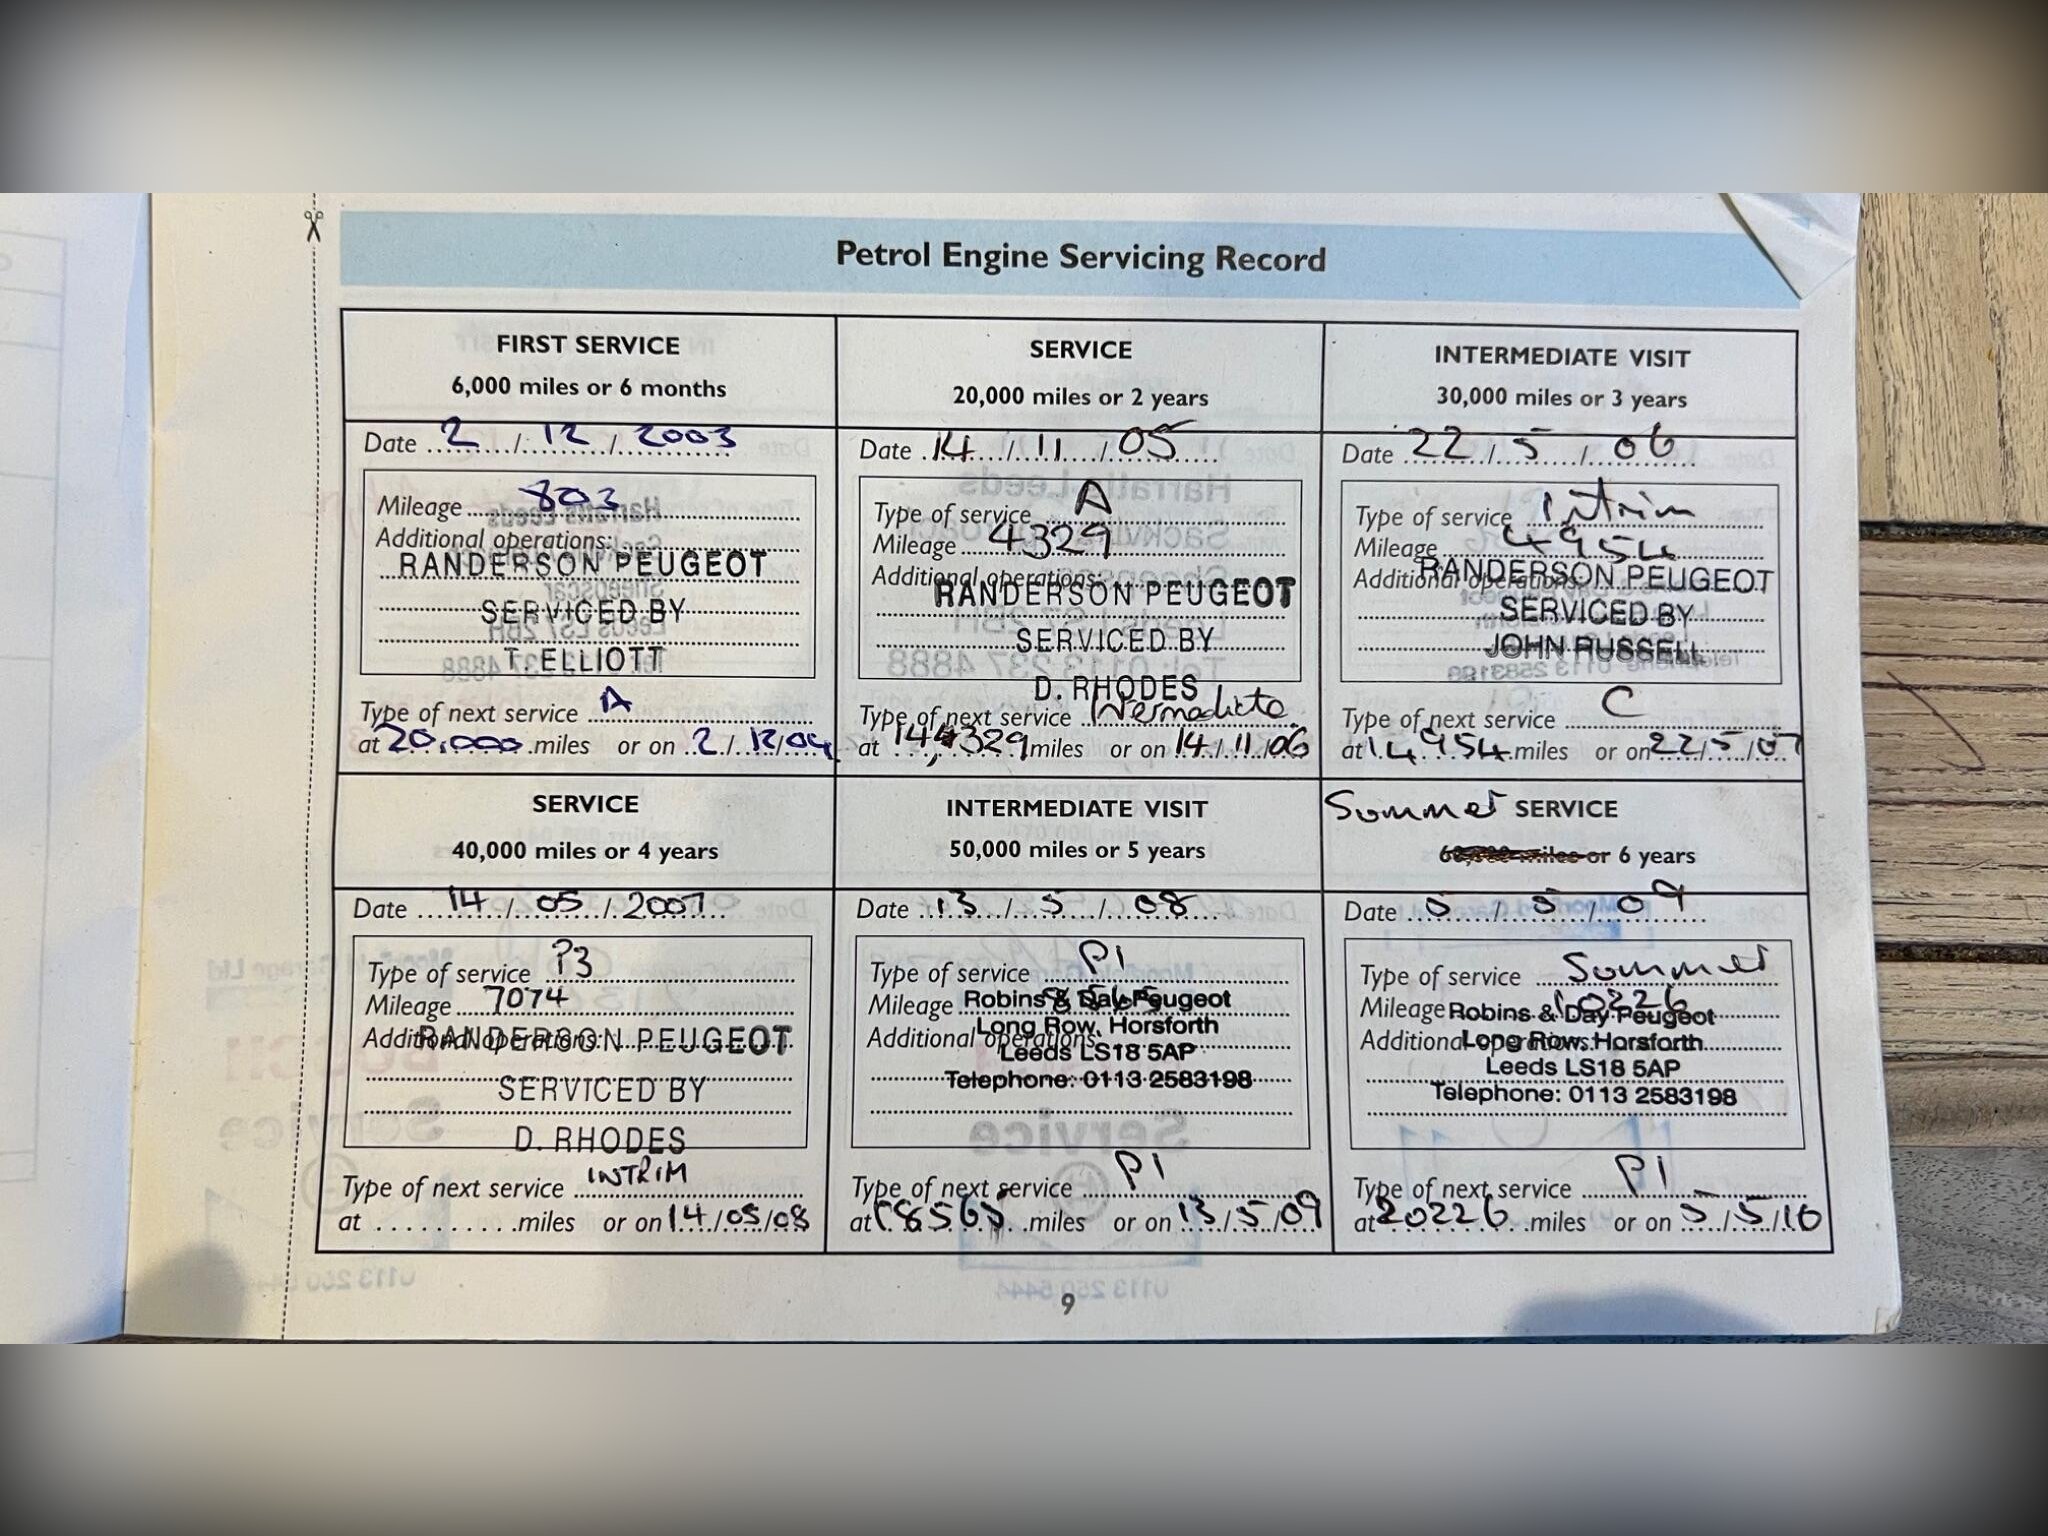 Petrol Engine Servicing Record
FIRST SERVICE
6,000 miles or 6 months
Date 2 / 12 / 2003
Mileage 803
Additional operations:
RANDERSON PEUGEOT
SERVICED BY
T. ELLIOTT
Type of next service A
at 20,000 miles or on 2/12/04
SERVICE
20,000 miles or 2 years
Date 14 / 11 / 05
Type of service A
Mileage 4329
Additional operations:
RANDERSON PEUGEOT
SERVICED BY
D. RHODES
Type of next service
at 14,329 miles or on 14/11/06
INTERMEDIATE VISIT
30,000 miles or 3 years
Date 22 / 5 / 06
Type of service Intrim
Mileage 4954
Additional operations:
RANDERSON PEUGEOT
SERVICED BY
JOHN RUSSELL
Type of next service C
at 14954 miles or on 22/5/07
SERVICE
40,000 miles or 4 years
Date 14 / 05 / 2007
Type of service P3
Mileage 7074
Additional operations:
RANDERSON PEUGEOT
SERVICED BY
D. RHODES
Type of next service INTRIM
at miles or on 14/05/08
INTERMEDIATE VISIT
50,000 miles or 5 years
Date 13 / 5 / 08
Type of service P1
Mileage
Robins & Day Peugeot
Additional operations:
Long Row, Horsforth
Leeds LS18 5AP
Telephone: 0113 2583198
Type of next service P1
at 18565 miles or on 13/5/09
Sommer SERVICE
miles or 6 years
Date 5 / 5 / 09
Type of service Sommer
Mileage 10226
Robins & Day Peugeot
Additional operations:
Long Row, Horsforth
Leeds LS18 5AP
Telephone: 0113 2583198
Type of next service P1
at 20226 miles or on 5/5/10
9